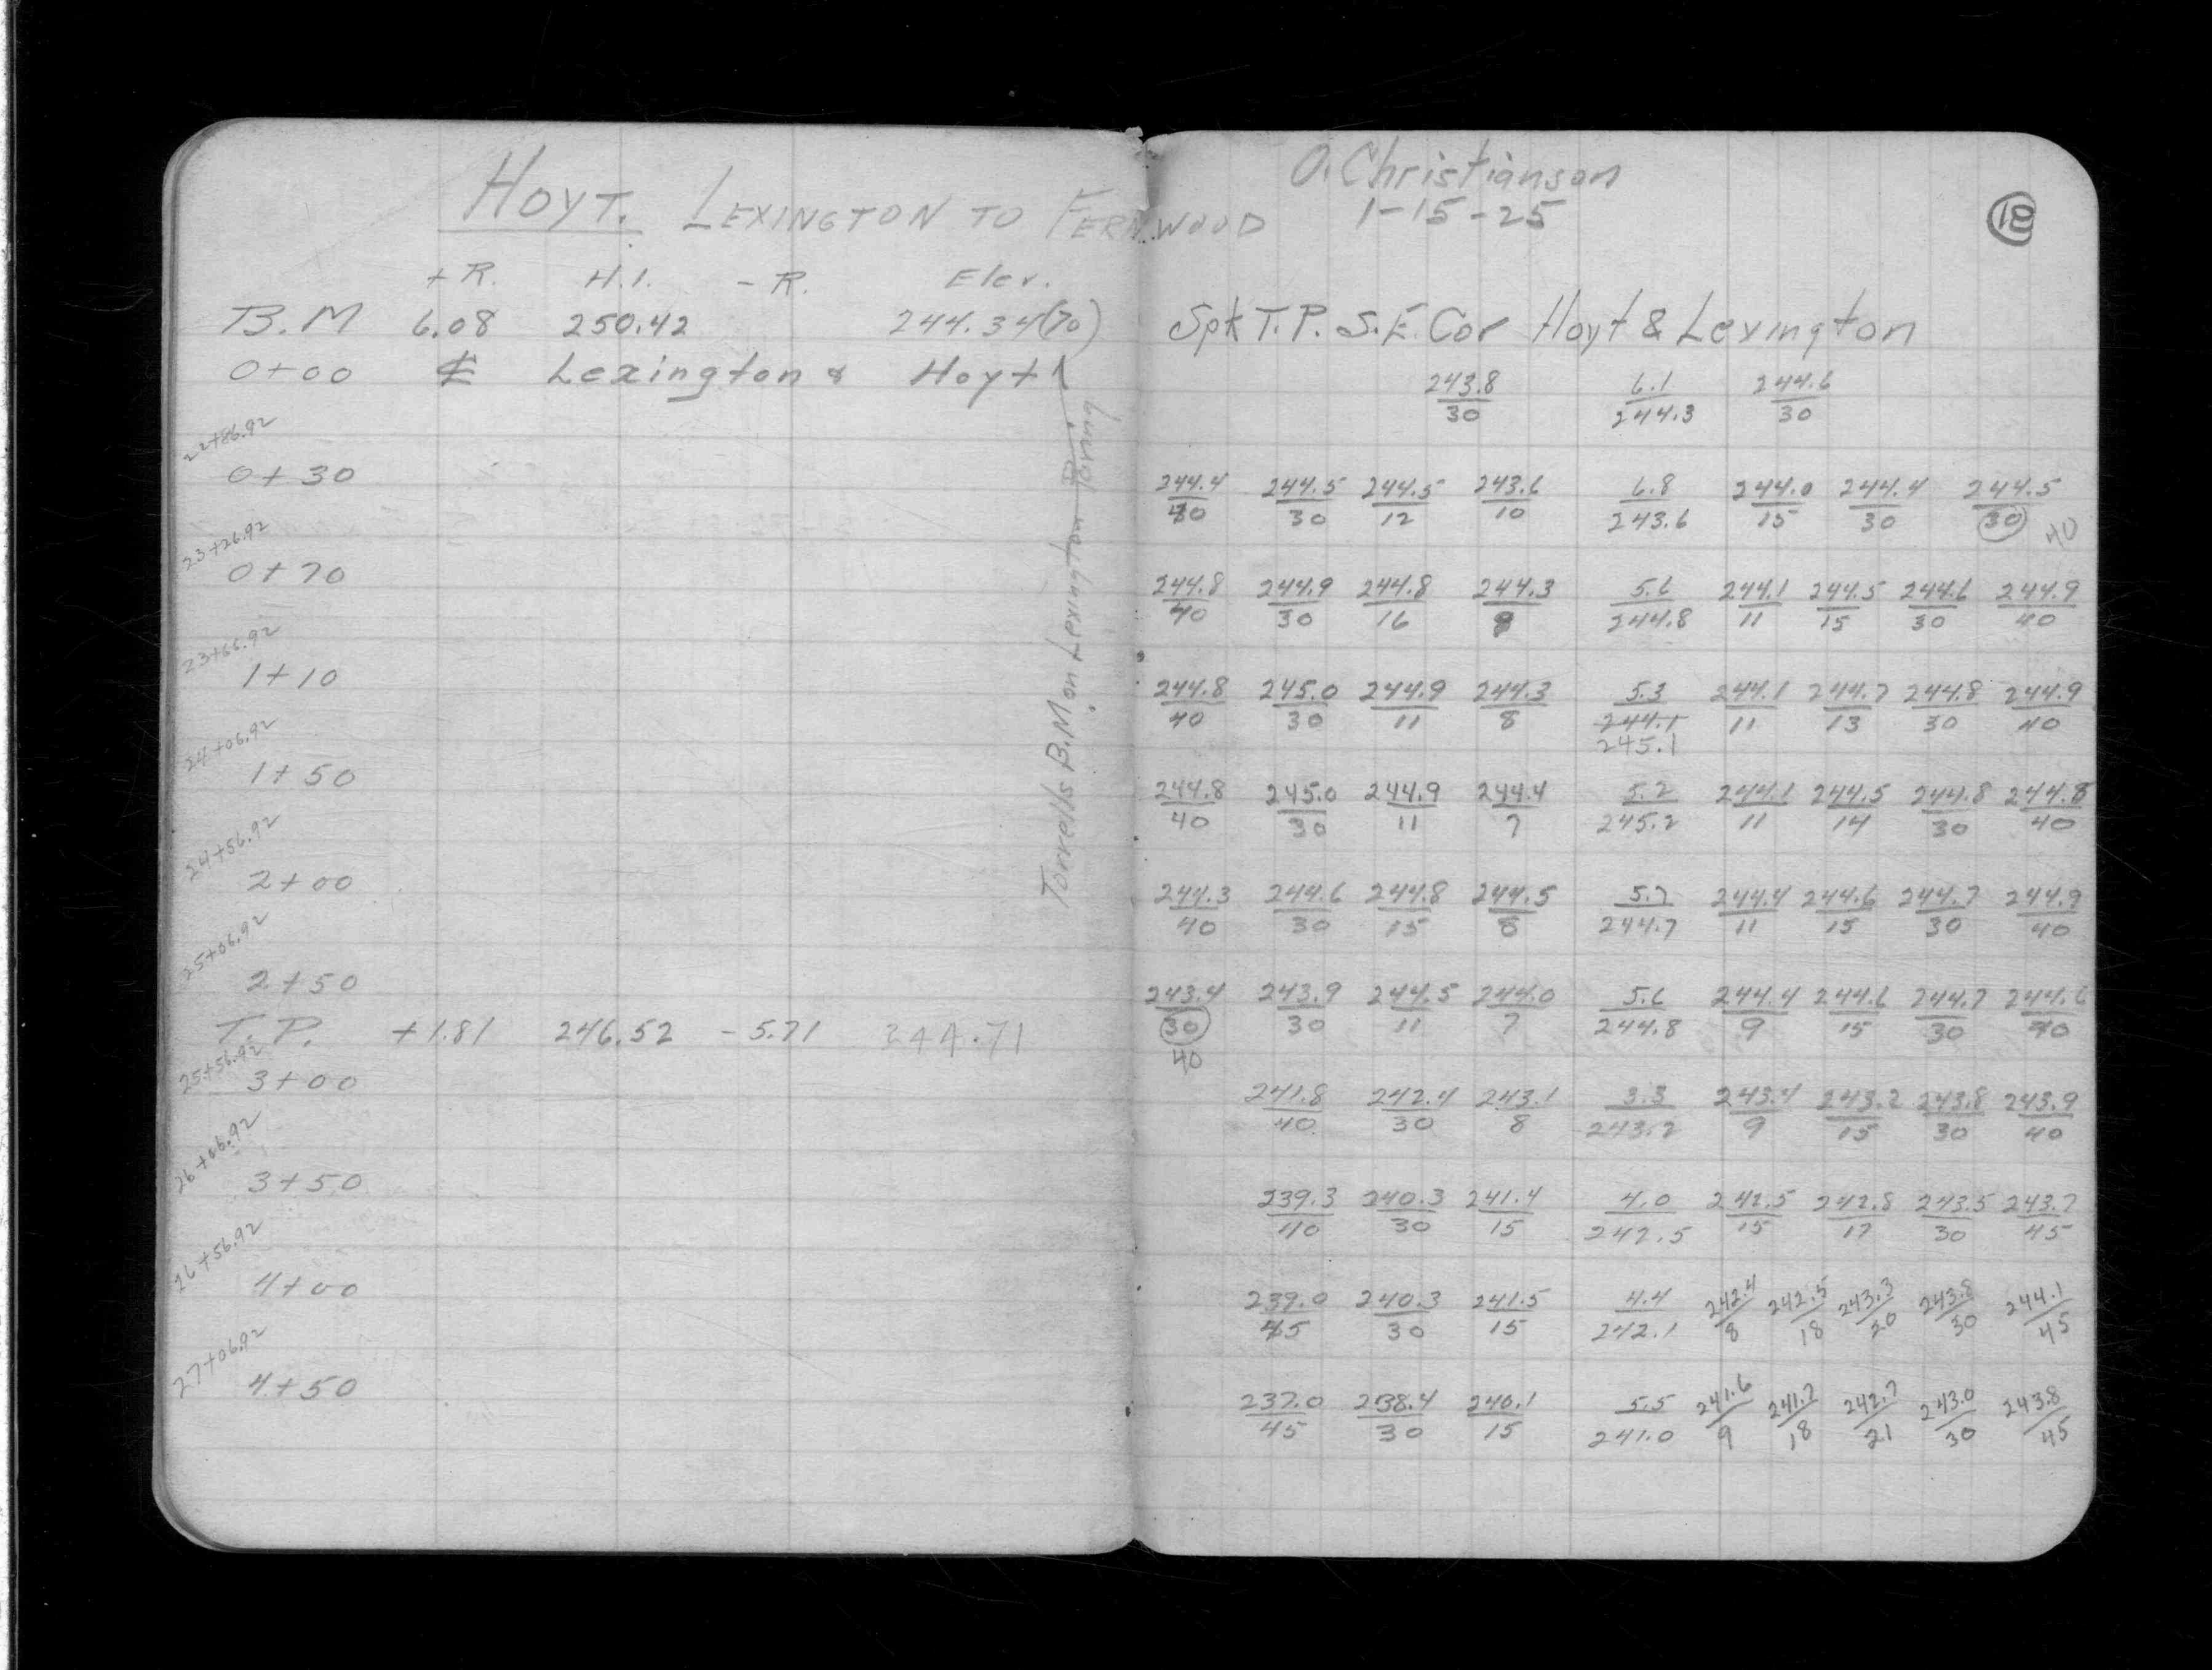 HOYT. LEXINGTON TO FERNWOOD
+R. H.I. -R. Elev.
B.M 6.08 250.42 244.34(70)
0+00 ℄ Lexington & Hoyt
22+86.92
0+30
23+26.92
0+70
23+66.92
1+10
24+06.92
1+50
24+56.92
2+00
25+06.92
2+50
T.P. +1.81 246.52 -5.71 244.71
25+56.92
3+00
26+06.92
3+50
26+56.92
4+00
27+06.92
4+50
B.M on Lexington
O. Christianson
1-15-25
18
Spk T.P. S.E. Cor Hoyt & Lexington
243.8/30 6.1/244.3 244.6/30
244.4/40 244.5/30 244.5/12 243.6/10 6.8/243.6 244.0/15 244.4/30 244.5/(30) 40
244.8/40 244.9/30 244.8/16 244.3/8 5.6/244.8 244.1/11 244.5/15 244.6/30 244.9/40
244.8/40 245.0/30 244.9/11 244.3/8 5.3/244.1 244.1/11 244.7/13 244.8/30 244.9/40
245.1
244.8/40 245.0/30 244.9/11 244.4/7 5.2/245.2 244.1/11 244.5/14 244.8/30 244.8/40
244.3/40 244.6/30 244.8/15 244.5/8 5.7/244.7 244.4/11 244.6/15 244.7/30 244.9/40
243.4/(30) 243.9/30 244.5/11 244.0/7 5.6/244.8 244.4/9 244.6/15 244.7/30 244.6/40
40
241.8/40 242.4/30 243.1/8 3.3/243.2 243.4/9 243.2/15 243.8/30 243.9/40
239.3/40 240.3/30 241.4/15 4.0/242.5 242.5/15 242.8/17 243.5/30 243.7/45
239.0/45 240.3/30 241.5/15 4.4/242.1 242.4/8 242.5/18 243.3/20 243.8/30 244.1/45
237.0/45 238.4/30 240.1/15 5.5/241.0 241.6/9 241.7/18 242.7/21 243.0/30 243.8/45